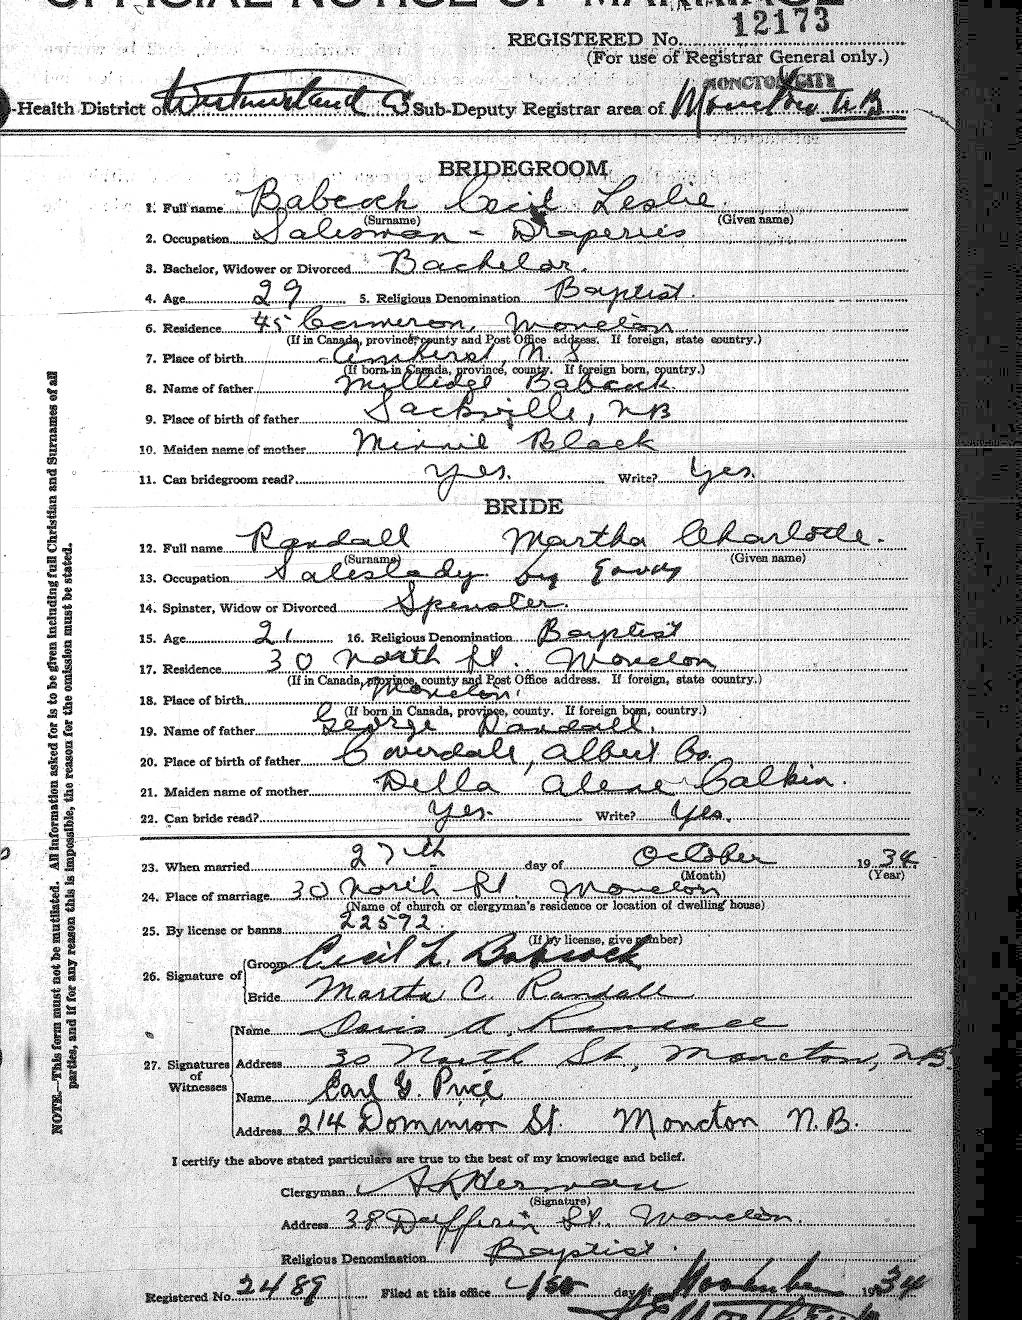 OFFICIAL NOTICE OF MARRIAGE
REGISTERED No. 12173
(For use of Registrar General only.)
MONCTON CITY
-Health District of Westmorland Co Sub-Deputy Registrar area of Moncton N.B
BRIDEGROOM
1. Full name Babcock Cecil Leslie
(Surname) (Given name)
2. Occupation Salesman - Draperies
3. Bachelor, Widower or Divorced Bachelor.
4. Age 29 5. Religious Denomination Baptist.
6. Residence 45 Cameron, Moncton
(If in Canada, province, county and Post Office address. If foreign, state country.)
7. Place of birth Amherst N. S
(If born in Canada, province, county. If foreign born, country.)
8. Name of father Milledge Babcock.
9. Place of birth of father Sackville, NB
10. Maiden name of mother Minnie Black
11. Can bridegroom read? Yes. Write? Yes.
BRIDE
12. Full name Randall Martha Charlotte.
(Surname) (Given name)
13. Occupation Saleslady
14. Spinster, Widow or Divorced Spinster.
15. Age 21 16. Religious Denomination Baptist
17. Residence 30 North St. Moncton
(If in Canada, province, county and Post Office address. If foreign, state country.)
18. Place of birth Moncton.
(If born in Canada, province, county. If foreign born, country.)
19. Name of father George Randall.
20. Place of birth of father Coverdale, Albert Co.
21. Maiden name of mother Della Alene Calkin.
22. Can bride read? Yes. Write? Yes.
23. When married 27th day of October 1934
(Month) (Year)
24. Place of marriage 30 North St. Moncton
(Name of church or clergyman's residence or location of dwelling house)
25. By license or banns 22592
(If by license, give number)
26. Signature of Groom Cecil L. Babcock
Bride Martha C. Randall
27. Signatures of Witnesses
Name Davis A. Randall
Address 30 North St., Moncton, N.B.
Name Earl G. Price
Address 214 Dominion St. Moncton N.B.
I certify the above stated particulars are true to the best of my knowledge and belief.
Clergyman A K Herman
(Signature)
Address 38 Dufferin St. Moncton.
Religious Denomination Baptist.
Registered No. 2489 Filed at this office day November 1934
NOTE.—This form must not be mutilated. All information asked for is to be given including full Christian and Surnames of all
parties, and if for any reason this is impossible, the reason for the omission must be stated.